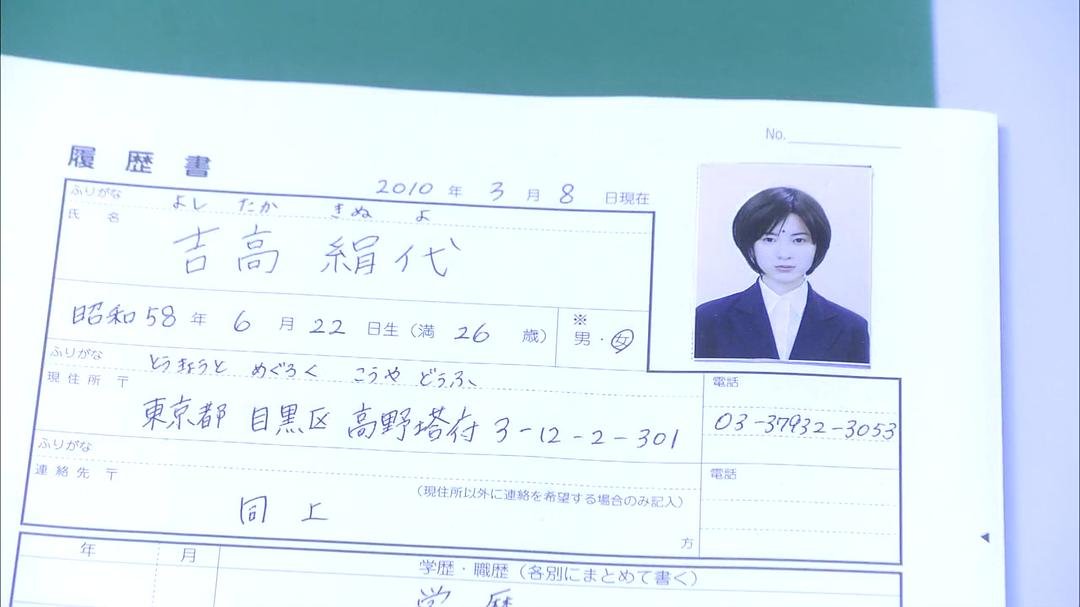 No.
履歴書
2010年3月8日現在
ふりがな よしたか きぬよ
氏名 吉高 絹代
昭和58年6月22日生(満26歳)
※
男・女
ふりがな とうきょうと めぐろく こうや どうふ
現住所 〒
東京都 目黒区 高野塔府 3-12-2-301
電話
03-37932-3053
ふりがな
連絡先 〒
(現住所以外に連絡を希望する場合のみ記入)
同上
方
電話
年 月 学歴・職歴(各別にまとめて書く)
学歴